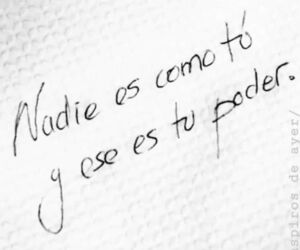 Nadie es como tú
y ese es tu poder.
spiros de ayer/